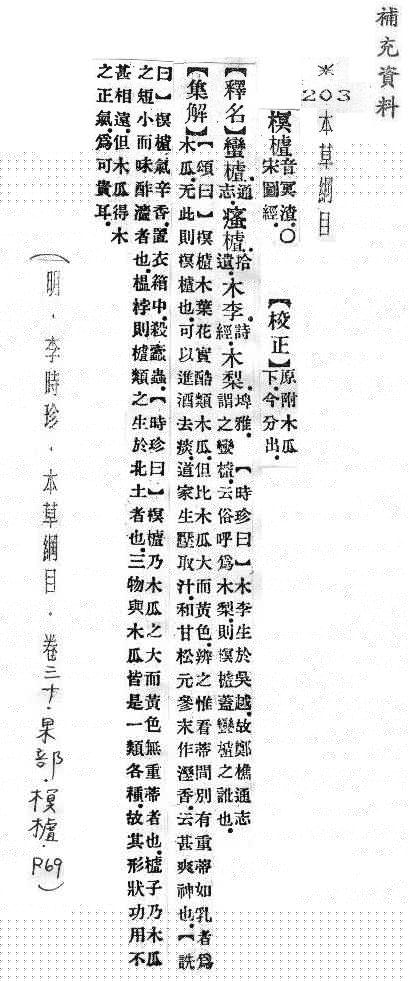 補充資料
*203 本草綱目
榠樝音冥渣.〇宋圖經. 【校正】原附木瓜下.今分出.
【釋名】蠻樝通志.瘙樝拾遺.木李詩經.木梨埤雅.【時珍曰】木李生於吳越.故鄭樵通志謂之蠻樝.云俗呼為木梨.則榠樝蓋蠻樝之訛也.
【集解】【頌曰】榠樝木葉花實酷類木瓜.但比木瓜大而黃色.辨之惟看蒂間別有重蒂如乳者為
木瓜.无此則榠樝也.可以進酒去痰.道家生壓取汁.和甘松元參末作溼香.云甚爽神也.【詵
曰】榠樝氣辛香.置衣箱中.殺蠹蟲.【時珍曰】榠樝乃木瓜之大而黃色無重蒂者也.樝子乃木瓜
之短小而味酢澀者也.榲桲則樝類之生於北土者也.三物與木瓜皆是一類各種.故其形狀功用不
甚相遠.但木瓜得木
之正氣.為可貴耳.
(明.李時珍.本草綱目.卷三十.果部.榠樝.P69)